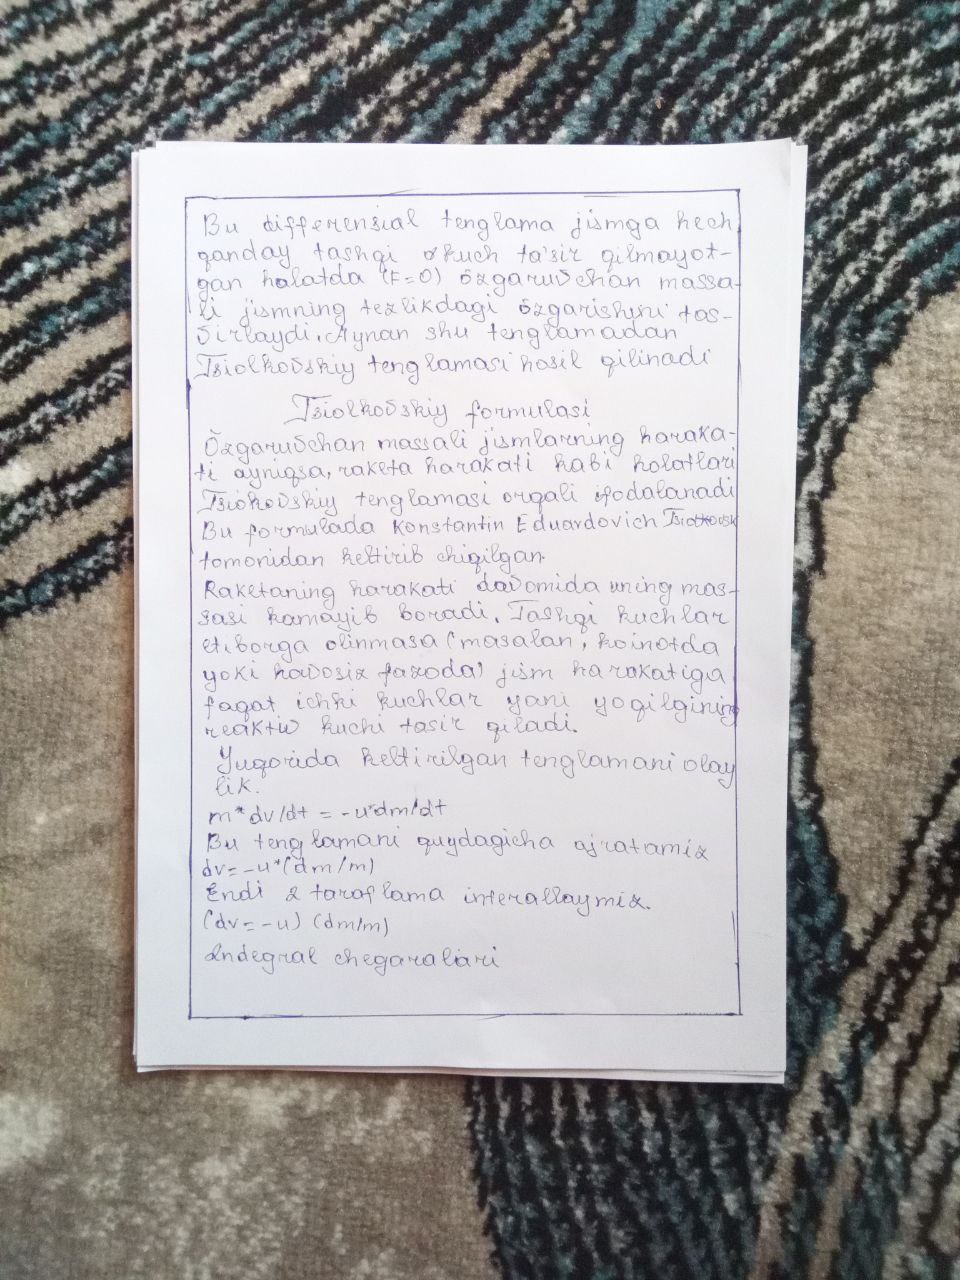 Bu differensial tenglama jismga hech
qanday tashqi kuch ta'sir qilmayot-
gan halatda (F=0) õzgaruvchan massa-
li jismning tezlikdagi õzgarishini tas-
virlaydi. Aynan shu tenglamadan
Tsiolkovskiy tenglamasi hosil qilinadi
Tsiolkovskiy formulasi
Õzgaruvchan massali jismlarning haraka-
ti ayniqsa, raketa harakati kabi holatlari
Tsiokovskiy tenglamasi orqali ifodalanadi
Bu formulada Konstantin Eduardovich Tsiolkovsk
tomonidan keltirib chiqilgan.
Raketaning harakati davomida uning mas-
sasi kamayib boradi. Tashqi kuchlar
etiborga olinmasa (masalan, koinotda
yoki havosiz fazoda) jism harakatiga
faqat ichki kuchlar yani yoqilgining
reaktiv kuchi tasir qiladi.
Yuqorida keltirilgan tenglamani olay
lik.
m*dv/dt = -u*dm/dt
Bu tenglamani quydagicha ajratamiz
dv=-u*(dm/m)
Endi 2 taraflama interallaymiz.
(dv=-u) (dm/m)
Indegral chegaralari